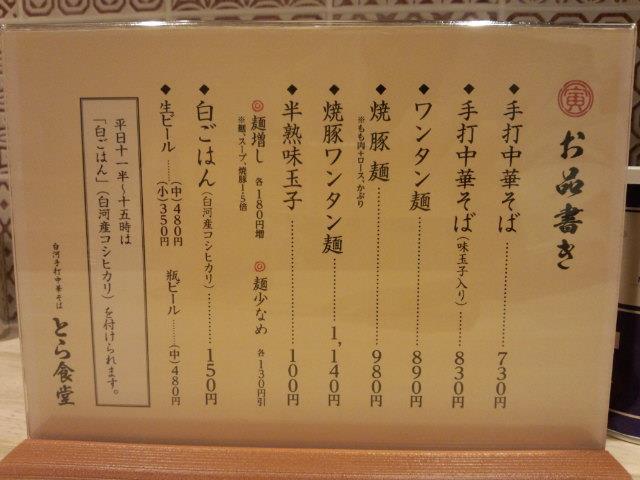 寅
お品書き
◆手打中華そば………730円
◆手打中華そば(味玉子入り)……830円
◆ワンタン麺………890円
◆焼豚麺………980円
※もも肉+ロース、かぶり
◆焼豚ワンタン麺……1,140円
◆半熟味玉子………100円
麺増し 各180円増
※麺、スープ、焼豚1.5倍
麺少なめ 各130円引
◆白ごはん(白河産コシヒカリ)……150円
◆生ビール……(中)480円
(小)350円
瓶ビール……(中)480円
平日十一半〜十五時は
「白ごはん」(白河産コシヒカリ)を付けられます。
白河手打中華そば
とら食堂